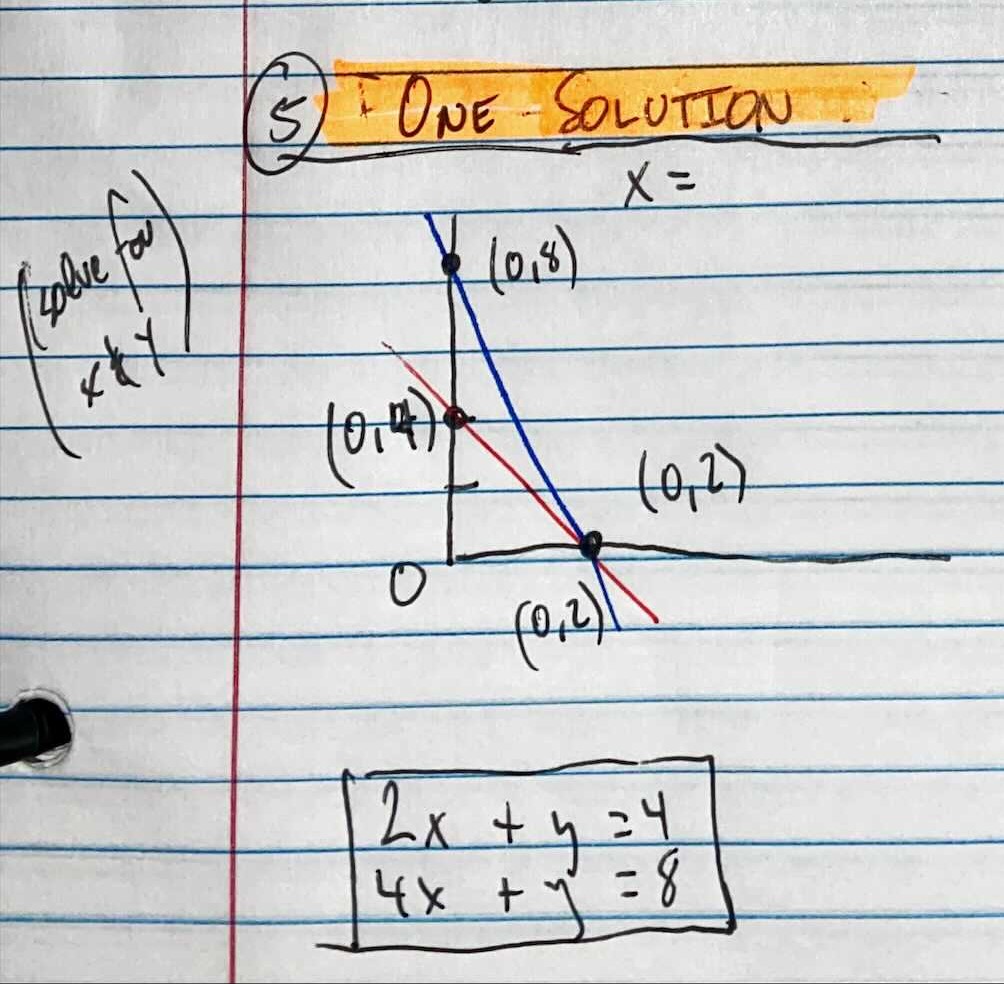 5 ONE SOLUTION
x =
(solve for
x & y)
(0,8)
(0,4)
(0,2)
0
(0,2)
2x + y = 4
4x + y = 8